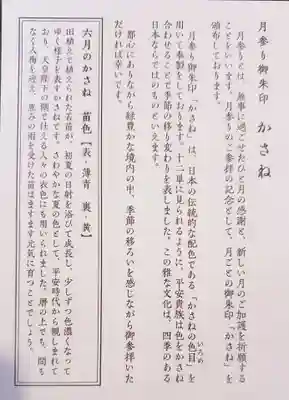 月参り御朱印 かさね
月参りとは、無事に過ごせたひと月の感謝と、新しい月のご加護を祈願する
ことをいいます。月参りのご参拝の記念として、月ごとの御朱印「かさね」を
頒布しております。
月参り御朱印「かさね」は、日本の伝統的な配色である「かさねの色目」を
いろめ
用いて奉製をしております。十二単に見られるように、平安貴族は色をかさね
合わせることで季節の移り変わりを表しました。この雅な文化は、四季のある
日本ならではのものといえます。
都心にありながら緑豊かな境内の中、季節の移ろいを感じながら御参拝いた
だければ幸いです。
六月のかさね 苗色【表・薄青 裏・黄】
田植えで植えられた若苗が、初夏の日射を浴びて成長し、少しずつ色濃くなって
ゆく様子を表すかさねです。さわやかな夏の色として、平安時代から親しまれて
おり、天皇陛下の側で仕える人々の衣色にも用いられました。暦の上でも、間も
なく入梅を迎え、恵みの雨を受けた苗はますます元気に育つことでしょう。